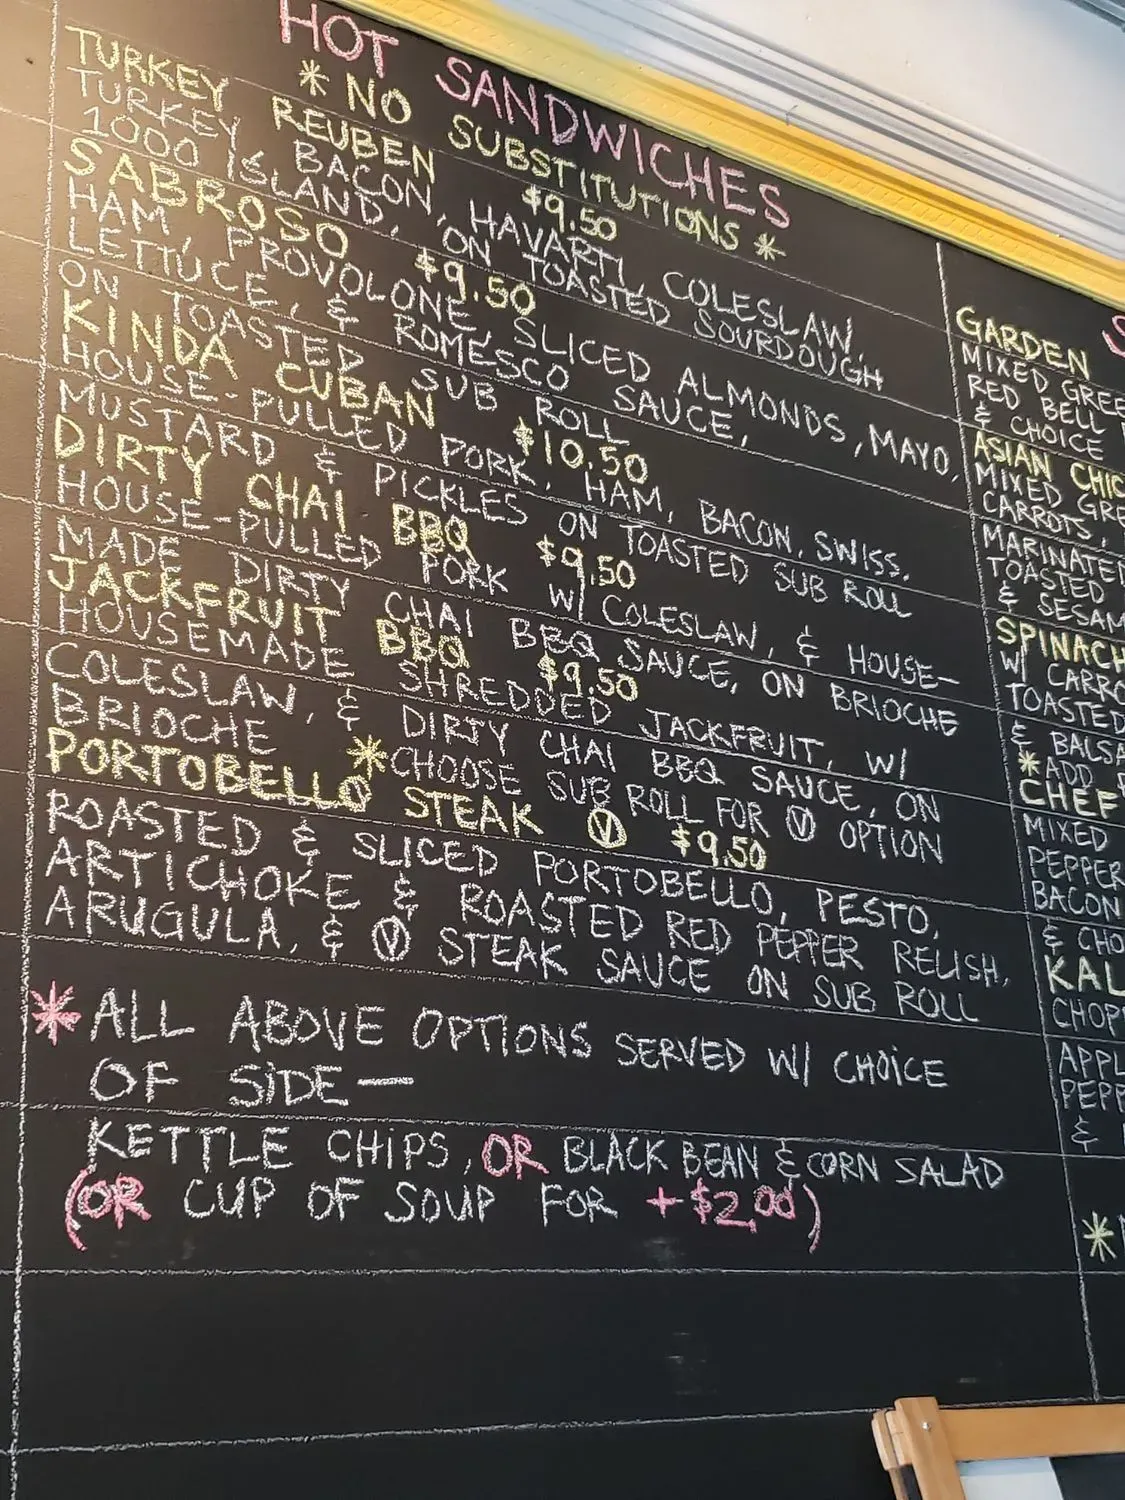 HOT SANDWICHES
* NO SUBSTITUTIONS *
TURKEY REUBEN $9.50
TURKEY, BACON, HAVARTI, COLESLAW,
1000 ISLAND, ON TOASTED SOURDOUGH
SABROSO $9.50
HAM, PROVOLONE, SLICED ALMONDS, MAYO,
LETTUCE, & ROMESCO SAUCE,
ON TOASTED SUB ROLL
KINDA CUBAN $10.50
HOUSE-PULLED PORK, HAM, BACON, SWISS,
MUSTARD & PICKLES ON TOASTED SUB ROLL
DIRTY CHAI BBQ $9.50
HOUSE-PULLED PORK W/ COLESLAW, & HOUSE-
MADE DIRTY CHAI BBQ SAUCE, ON BRIOCHE
JACKFRUIT BBQ $9.50
HOUSEMADE SHREDDED JACKFRUIT, W/
COLESLAW, & DIRTY CHAI BBQ SAUCE, ON
BRIOCHE *CHOOSE SUB ROLL FOR Ⓥ OPTION
PORTOBELLO STEAK Ⓥ $9.50
ROASTED & SLICED PORTOBELLO, PESTO,
ARTICHOKE & ROASTED RED PEPPER RELISH,
ARUGULA, & Ⓥ STEAK SAUCE ON SUB ROLL
* ALL ABOVE OPTIONS SERVED W/ CHOICE
OF SIDE—
KETTLE CHIPS, OR BLACK BEAN & CORN SALAD
(OR CUP OF SOUP FOR +$2.00)
S
GARDEN
MIXED GREE
RED BELL
& CHOICE
ASIAN CHIC
MIXED GRE
CARROTS,
MARINATED
TOASTED
& SESAM
SPINACH
W/ CARRO
TOASTED
& BALSA
*ADD
CHEF
MIXED
PEPPER
BACON
& CHO
KAL
CHOP
APPL
PEPP
&
*